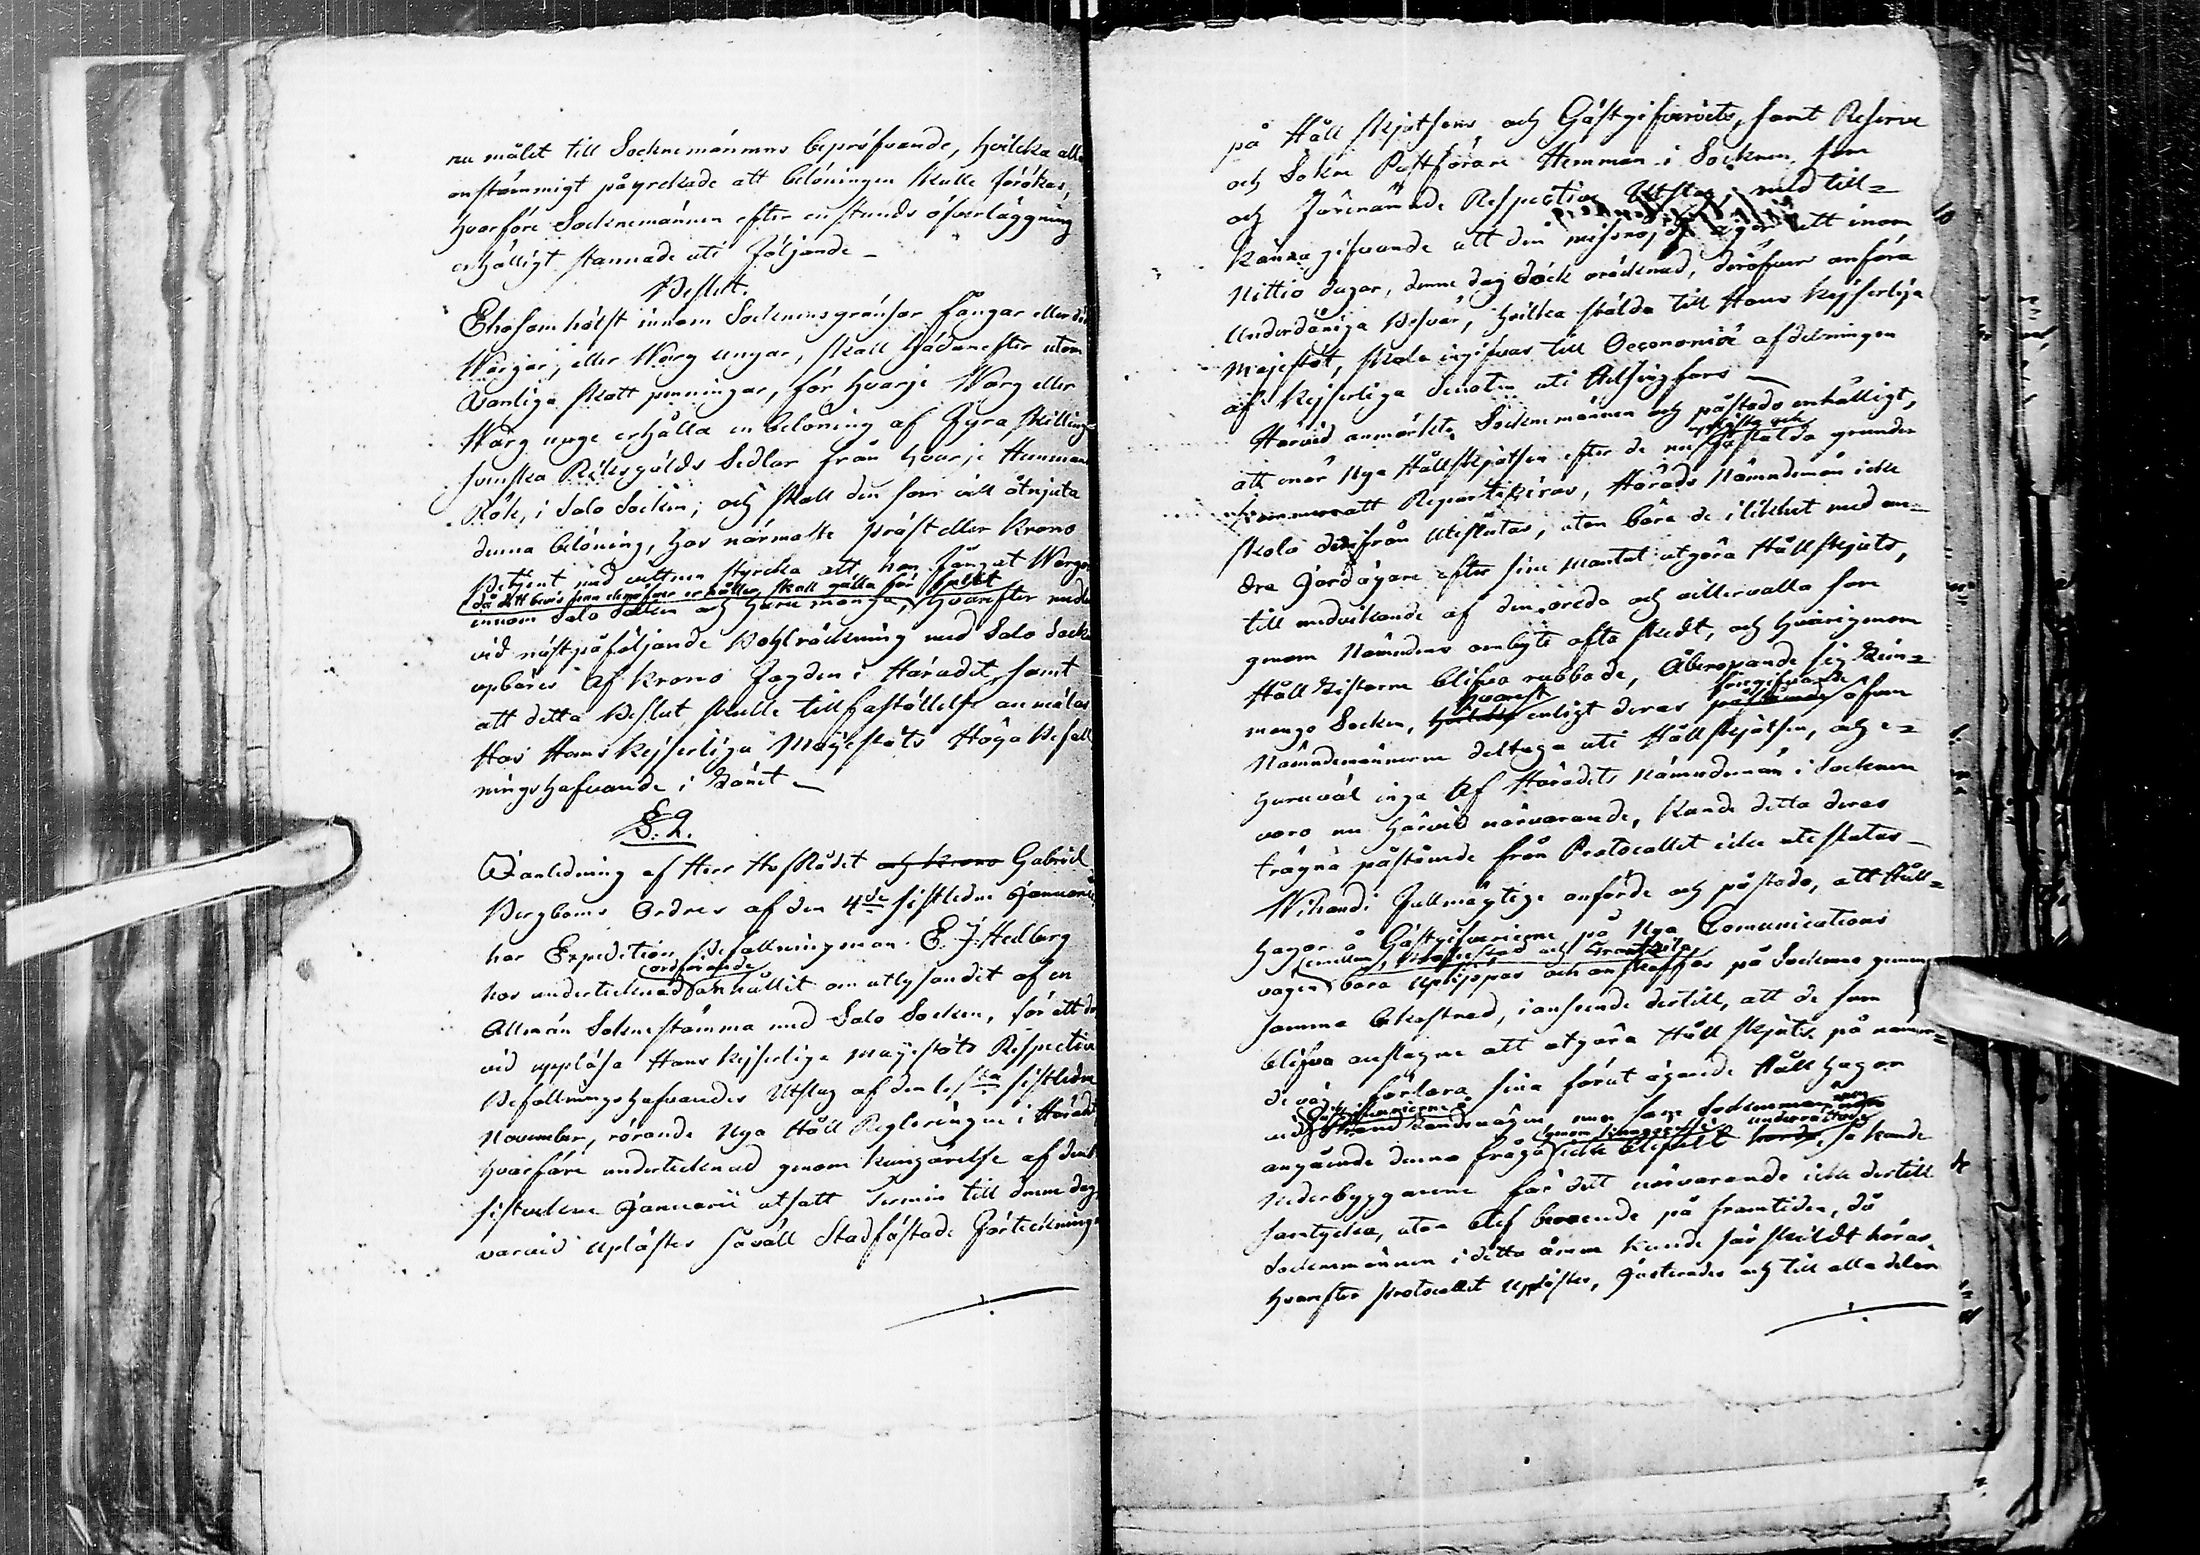 nu målet till Socknemännens bepröfvande, hvilcka alla
enstämmigt påyrckade att belöningen skulle förökas,
hvarföre Socknemännen efter en stunds öfverläggning
enhälligt stannade uti följande –
Beslut.
Eho som hälst innom Socknens gränsor fångar eller
Wargar, eller Warg ungar, skall hädanefter utom
vanliga skatt penningar, för hvarje Warg eller
Warg unge erhålla en belöning af Fyra skilling
svenska Riksgälds Sedlar från hvarje Hemman
Rök, i Salo Socken; och skall den som vill åtnjuta
denna belöning, hos närmaste präst eller Krono
Betjent med vittnen styrcka att han fångat Wargen
då ett bevis skall gälla för fullt
innom Salo Socken och huru många, hvarefter
vid nästpåföljande Bohlräckning med Salo Sock
upbäres af Krono Fogden i Häradet, samt
att detta Beslut skulle till fastställelse anmälas
Hos Hans Kejserliga Majestäts Höga Befall
ningshafvande i Länet –
§. 2.
I anledning af Herr Hof Rådet och Krono Gabriel
Bergboms Ordres af den 4de sistledne Januarii
har Expeditions Befallningsman E. J. Hedberg
ordförande
hos undertecknad anhållit om utlysandet af en
Allmän Soknestämma med Salo Socken, för att der
vid uppläsa Hans Kejserliga Majestäts Respective
Befallningshafvandes Utslag af den sistledne
November, rörande Nya Håll Regleringen i Häradet
hvarföre undertecknad genom kungörelse af den
sistvekne Januarii utsatt Termin till denne dag
varvid uplästes såväll Stadfästade Förteckning

på Håll skjutsens och Gästgifveriets, samt Reserve
och Sokne Postförare Hemman i Socknen, som
och förenämnde Respective Utslag, med till=
känna gifvande att den missnöjd äger att inom
Nittio dagar, denne dag dock oräcknad, deröfver anföra
Underdåniga Besvär, hvilka stälda till Hans Kejserliga
Majestät, skola ingifvas till Oeconomiæ afdelningen
af Kejserliga Senaten uti Helsingfors –
Härvid anmärkte Socknemännen och påstodo enhälligt,
upläste och
att när Nya Hållskjutsen efter de nu faststälda grunder
att Repartiseras, Härads Nämndemän icke
skola derifrån uteslutas, utan böra de i likhet med an=
dra Jordägare efter sine Mantal utgöra Hållskjuts,
till undvikande af den oreda och villervalla som
genom Nämndens ombyte ofta skedt, och hvarigenom
Håll Listorne blifva rubbade, Åberopande sig Limin=
hvarest föregifvande
mengo Socken, enligt deras påstående äfven
Nämndemännerne deltaga uti Hållskjutsen, och e=
huruväl inga af Häradets Nämndemän i Socknen
voro nu härvid närvarande, kande detta deras
trägna påstående från Protocollet icke uteslutas –
Wihandi Fullmägtige anförde och påstodo, att Håll=
hagor å Gästgifverierne på Nya Comunications
vägen böra uptippas och anskaffas på Socknens gemen
samma bekostnad, i anseende dertill, att de som
blifva anslagne att utgöra Håll skjuts på nämn=
de väg, förlora sina förut ägande Håll hagor
vid Strand Landsvägen, men som Sockenmännen
angående denna fråga icke blifvit hörde, så kande
Nederbyggarene för det närvarande icke dertill
samtycka, utan blef beroende på framtiden, då
Sockenmännen i detta ämne kunde särskildt höras.
Hvarefter Protocollet uplästes, Justerades och till alla delar